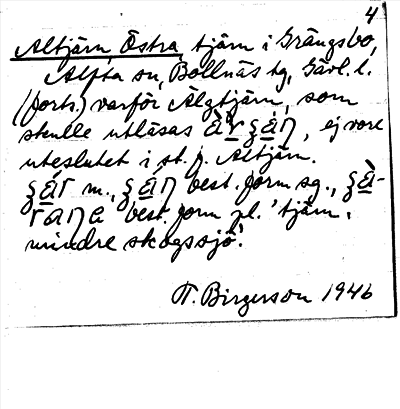 4
Altjärn, Östra, tjärn i Grängsbo,
Alfta sn, Bollnäs tg, Gävl. l.
(forts.) varför Älgtjärn, som
skulle utläsas ej vore
uteslutet i st. f. Altjärn.
m., best. form sg.,
best. form pl. 'tjärn,
mindre skogssjö'.
T. Birgerson 1946